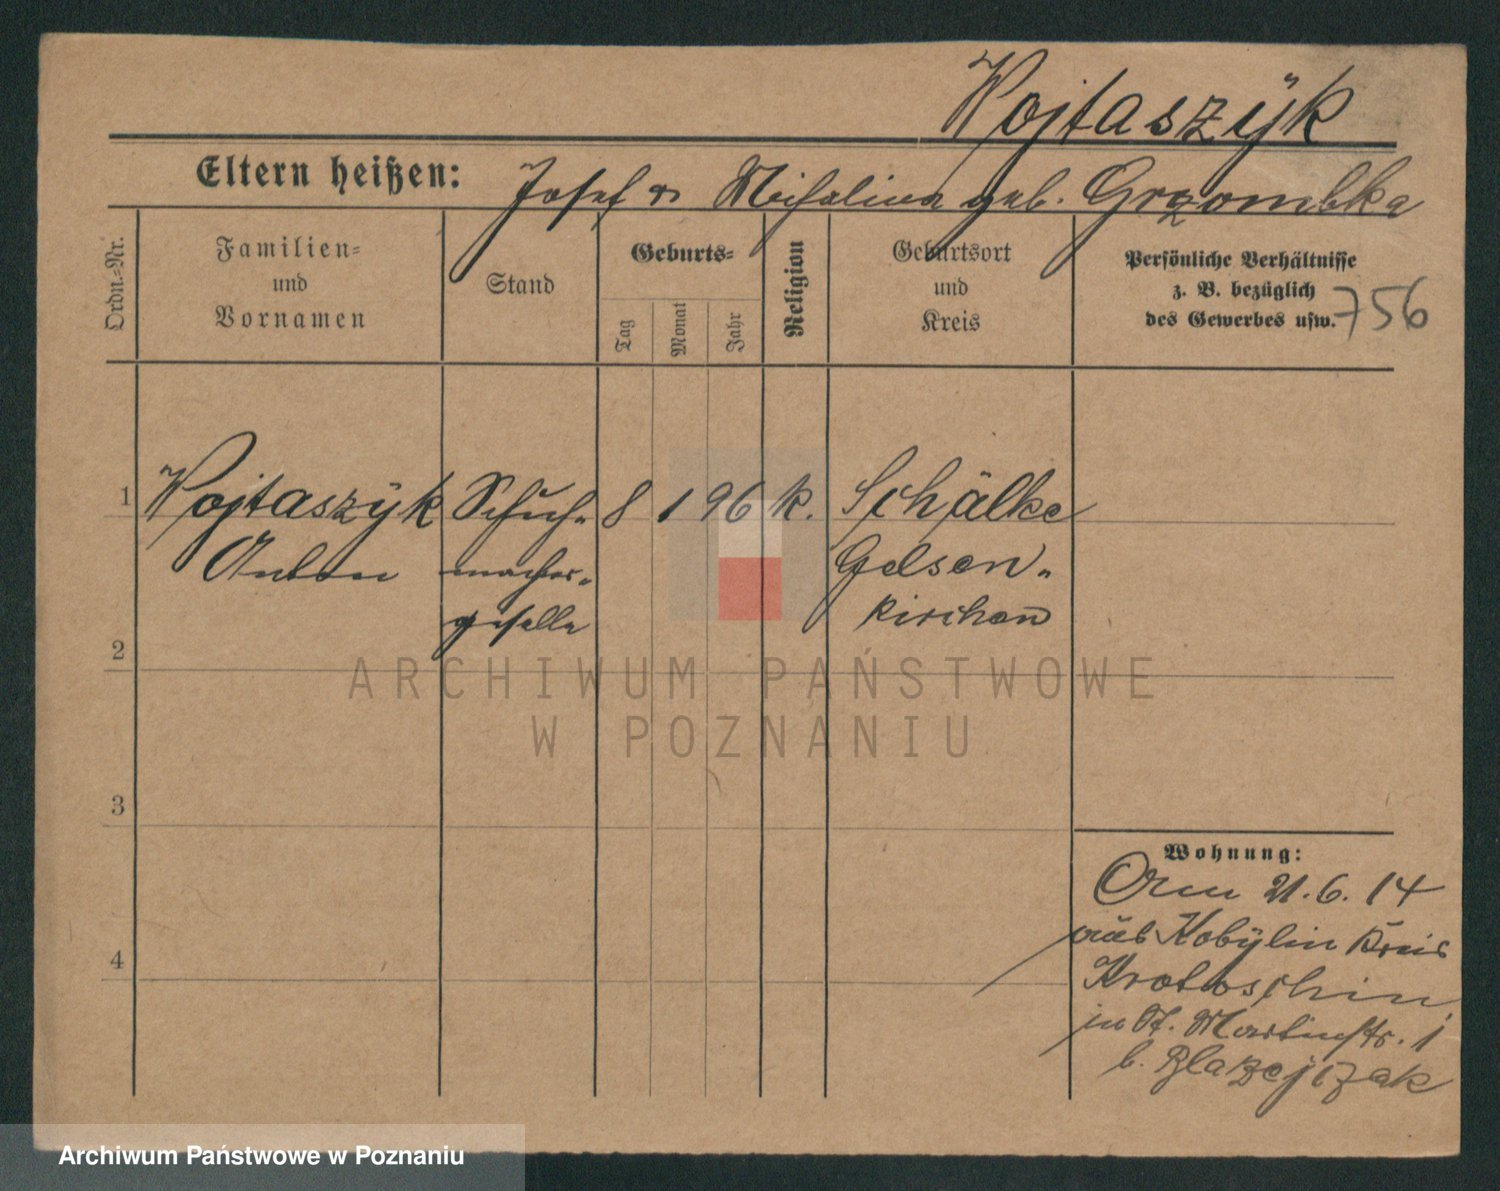 Wojtaszÿk
Eltern heißen: Josef u Michalina geb. Grzombka
Ordn.-Nr.
Familien-
und
Vornamen
Stand
Geburts-
Tag
Monat
Jahr
Religion
Geburtsort
und
Kreis
Persönliche Verhältnisse
z. B. bezüglich
des Gewerbes usw.
756
1 Wojtaszÿk Schuh- 8 1 96 k. Schälke
Anton macher- Gelsen-
geselle kirchen
2
3
4
ARCHIWUM PAŃSTWOWE
W POZNANIU
Wohnung:
21. 6. 14
aus Kobÿlin Kreis
Krotoschin
in St. Martinstr. 1
b. Blazejczak
Archiwum Państwowe w Poznaniu